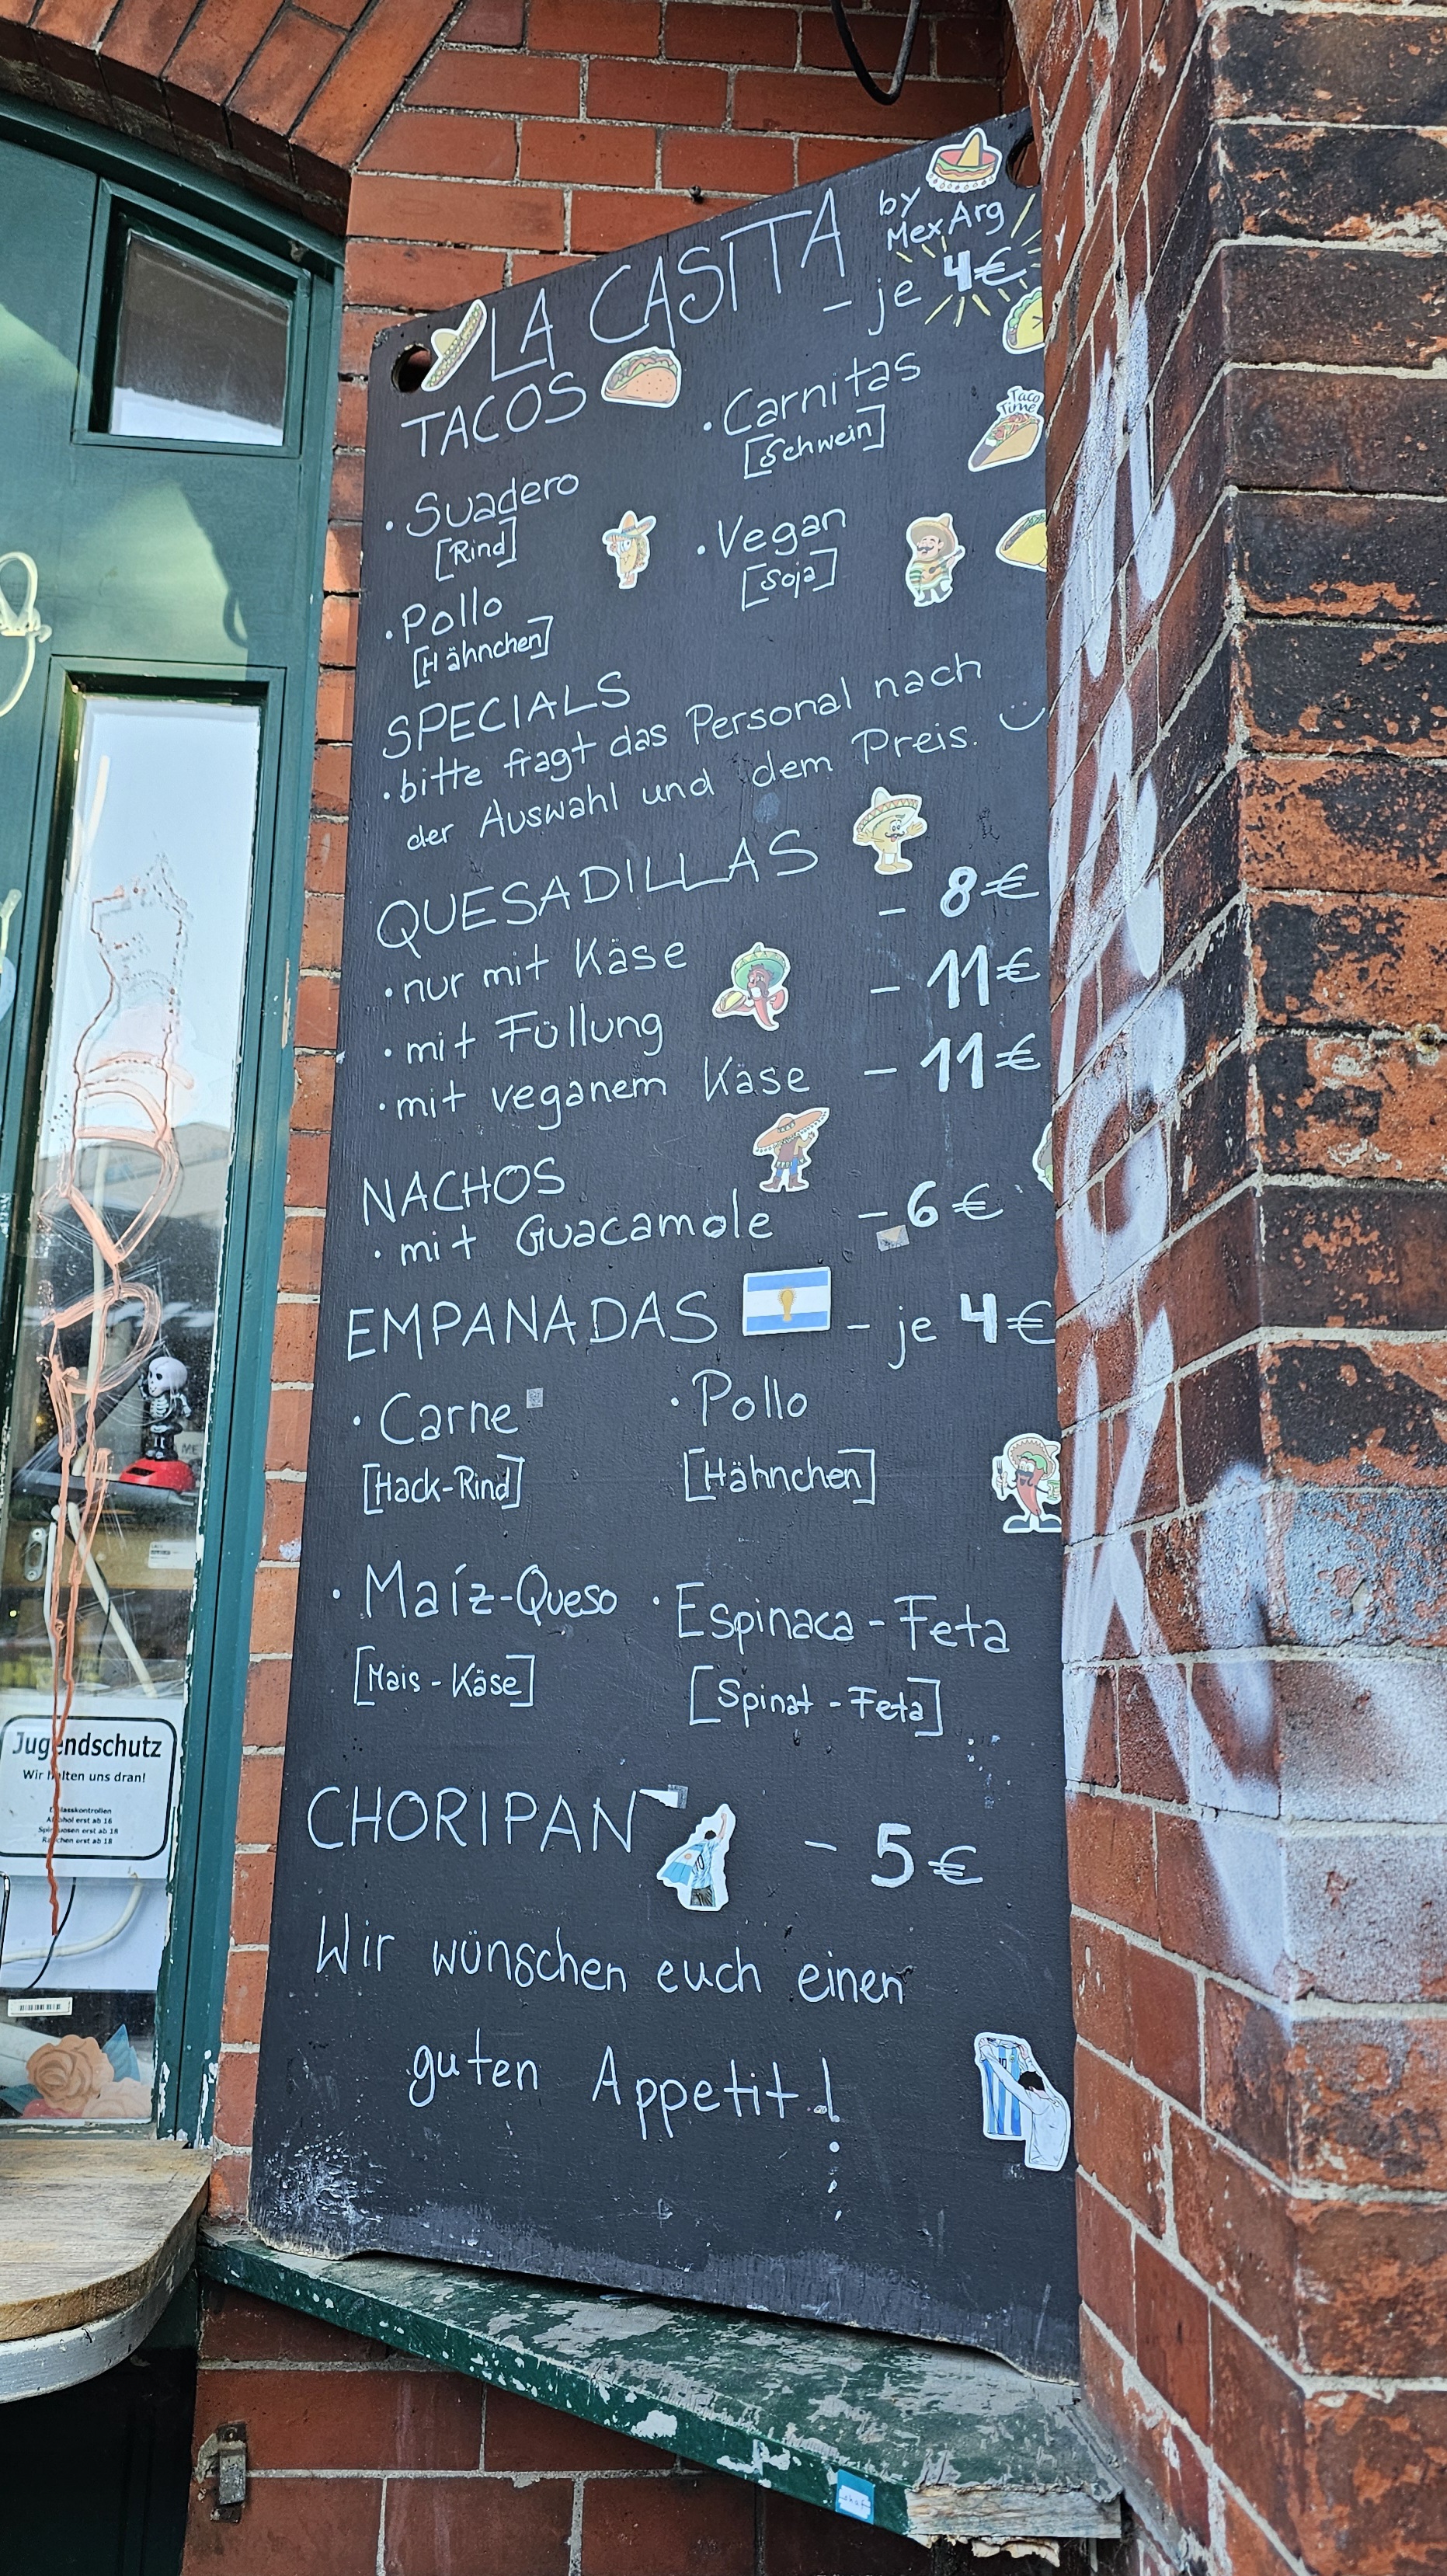 LA CASITA by
MexArg
TACOS - je 4€
Taco
Time
• Suadero
[Rind]
• Carnitas
[Schwein]
• Pollo
[Hähnchen]
• Vegan
[Soja]
SPECIALS
• bitte fragt das Personal nach
der Auswahl und dem Preis.
QUESADILLAS
• nur mit Käse - 8€
• mit Füllung - 11€
• mit veganem Käse - 11€
NACHOS
• mit Guacamole - 6€
EMPANADAS - je 4€
• Carne
[Hack-Rind]
• Pollo
[Hähnchen]
• Maíz-Queso
[Mais-Käse]
• Espinaca-Feta
[Spinat-Feta]
CHORIPAN - 5€
Wir wünschen euch einen
guten Appetit!
Jugendschutz
Wir halten uns dran!
Einlasskontrollen
Alkohol erst ab 16
Spirituosen erst ab 18
Rauchen erst ab 18